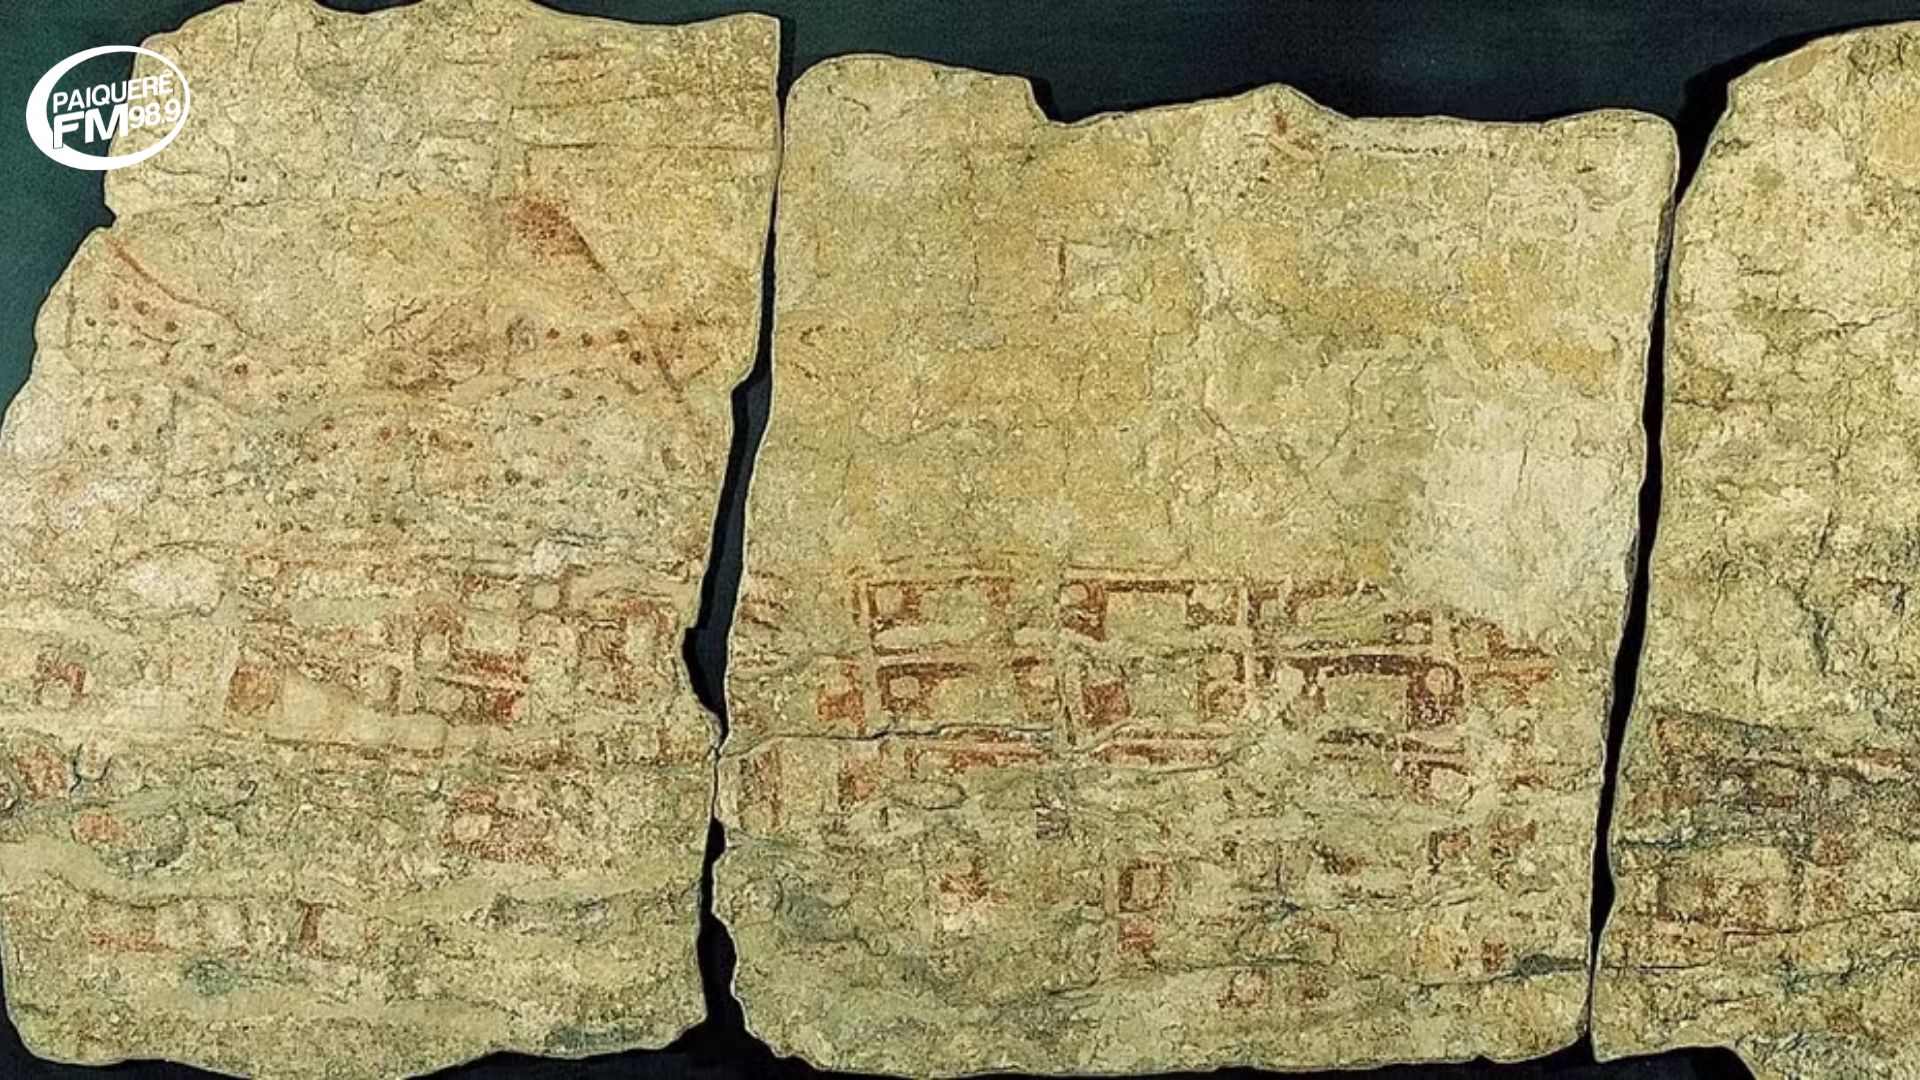 PAIQUERÊ
FM 98.9